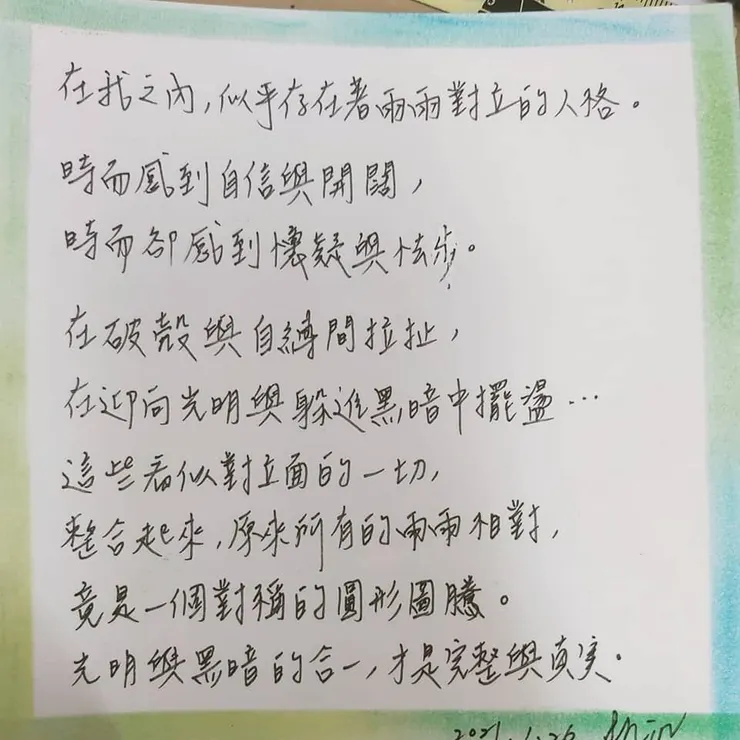 在我之內，似乎存在著兩兩對立的人格。
時而感到自信與開闊，
時而卻感到懷疑與怯步。
在破殼與自縛間拉扯，
在迎向光明與躲進黑暗中擺盪…
這些看似對立面的一切，
整合起來，原來所有的兩兩相對，
竟是一個對稱的圓形圖騰。
光明與黑暗的合一，才是完整與真实。
2021.1.26